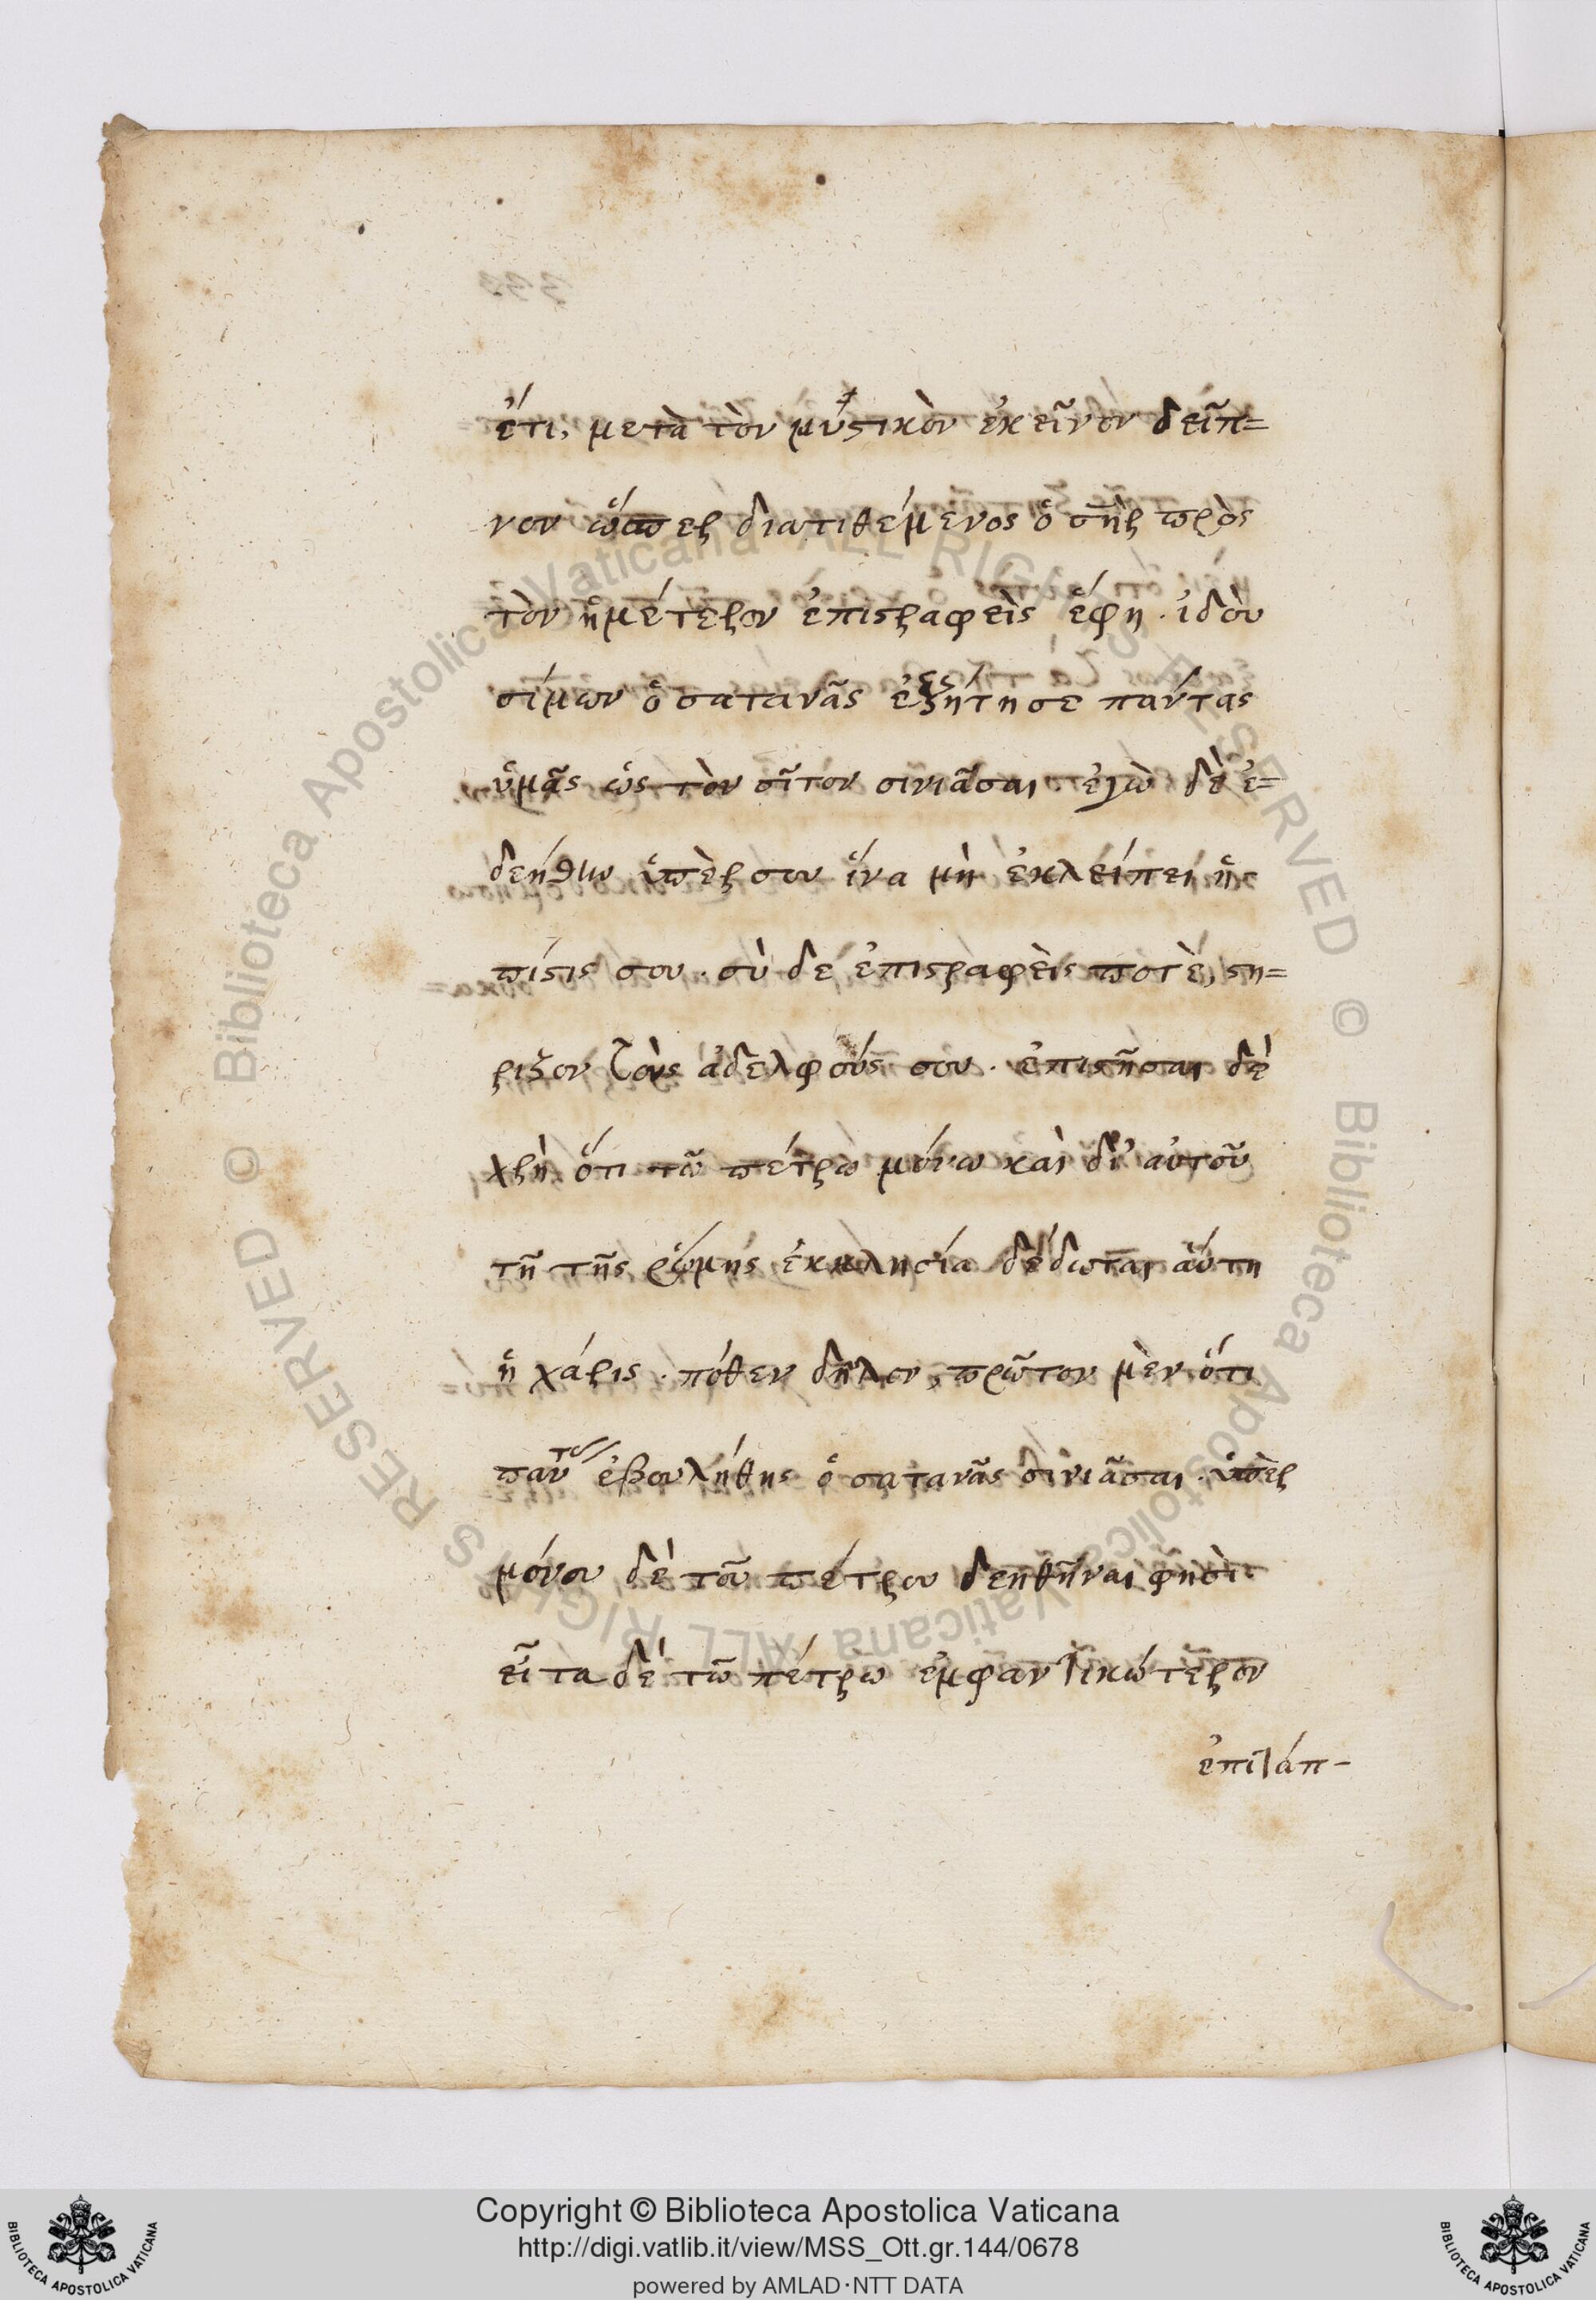 ἔτι, μετὰ τὸν μυστικὸν ἐκεῖνον δεῖπ=
νον ὥσπερ διατιθέμενος ὁ σὴρ πρὸς
τὸν ἡμέτερον ἐπιστραφεὶς ἔφη · ἰδοὺ
σίμων ὁ σατανᾶς ἐξήτησε πάντας
ὑμᾶς ὡς τὸν σῖτον σινιᾶσαι · ἐγὼ δὲ ἐ=
δεήθην ὑπὲρ σου ἵνα μὴ ἐκλείπει ἡ
πίστις σου · σὺ δέ ἐπιστραφεὶς ποτὲ, στή=
ριξον τοὺς ἀδελφούς σου · ἐπιστῆσαι δὲ
χρὴ ὅτι τῶ πέτρω μόνω καὶ δι' αὐτοῦ
τῆ τῆς ῥώμης ἐκκλησία δέδωται αὕτη
ἡ χάρις · πόθεν δῆλον, πρῶτον μὲν ὅτι
παντ ἐβουλήθης ὁ σατανᾶς σινιᾶσαι · ὑπὲρ
μόνου δὲ τοῦ πέτρου δεηθῆναι φησὶ
εἶτα δὲ τῶ πέτρω ἐμφαντικώτερον
ἐπιτάπ-
Copyright © Biblioteca Apostolica Vaticana
http://digi.vatlib.it/view/MSS_Ott.gr.144/0678
powered by AMLAD·NTT DATA
BIBLIOTECA APOSTOLICA VATICANA
BIBLIOTECA APOSTOLICA VATICANA
Biblioteca Apostolica Vaticana ALL RIGHTS RESERVED ©
Biblioteca Apostolica Vaticana ALL RIGHTS RESERVED ©